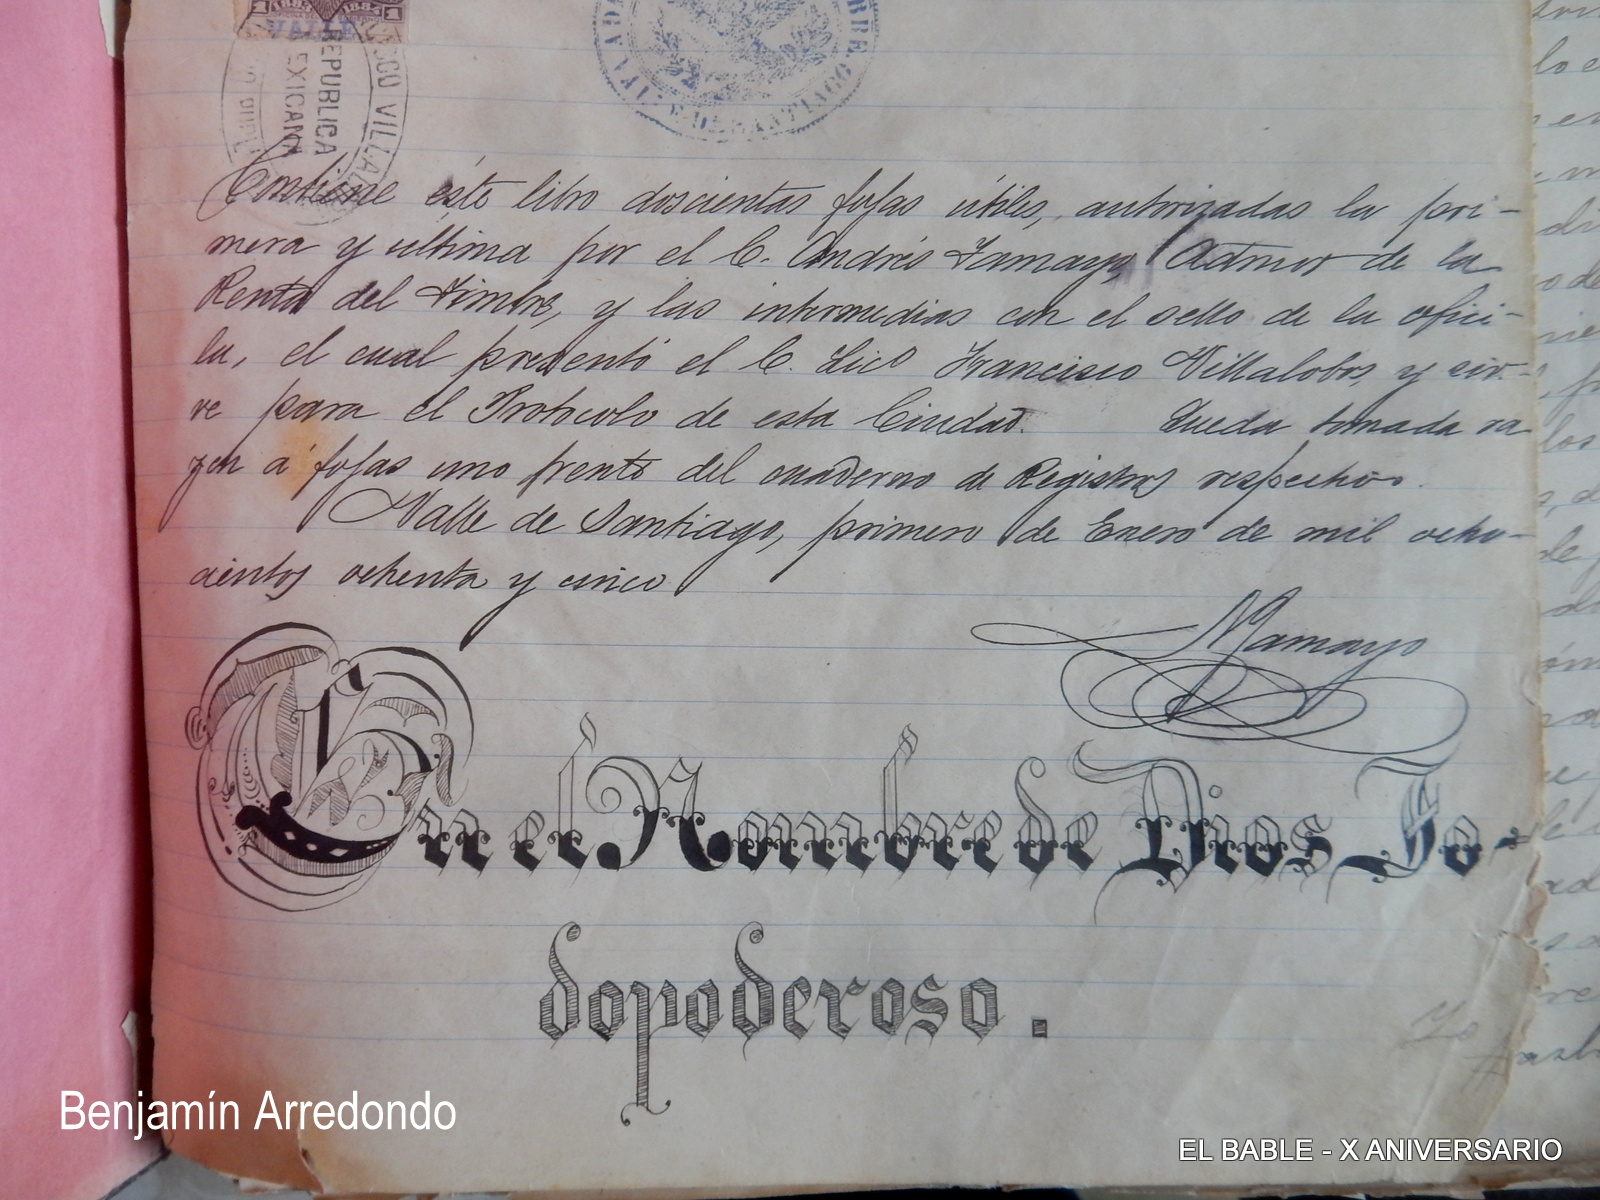 1884 1885
VALLE
REPUBLICA
MEXICANA
Contiene éste libro doscientas fojas útiles, autorizadas la pri-
mera y ultima por el C. Andrés Tamayo Admor de la
Renta del Timbre, y las intermedias con el sello de la ofici-
la, el cual presentó el C. Lico Francisco Villalobos, y sir-
ve para el Protocolo de esta Ciudad. Queda tomada ra
zon á fojas uno frente del cuaderno de Registros respectivo.
Valle de Santiago, primero de Enero de mil ocho-
cientos ochenta y cinco
Tamayo
En el Nombre de Dios To-
dopoderoso.
Benjamín Arredondo
EL BABLE - X ANIVERSARIO